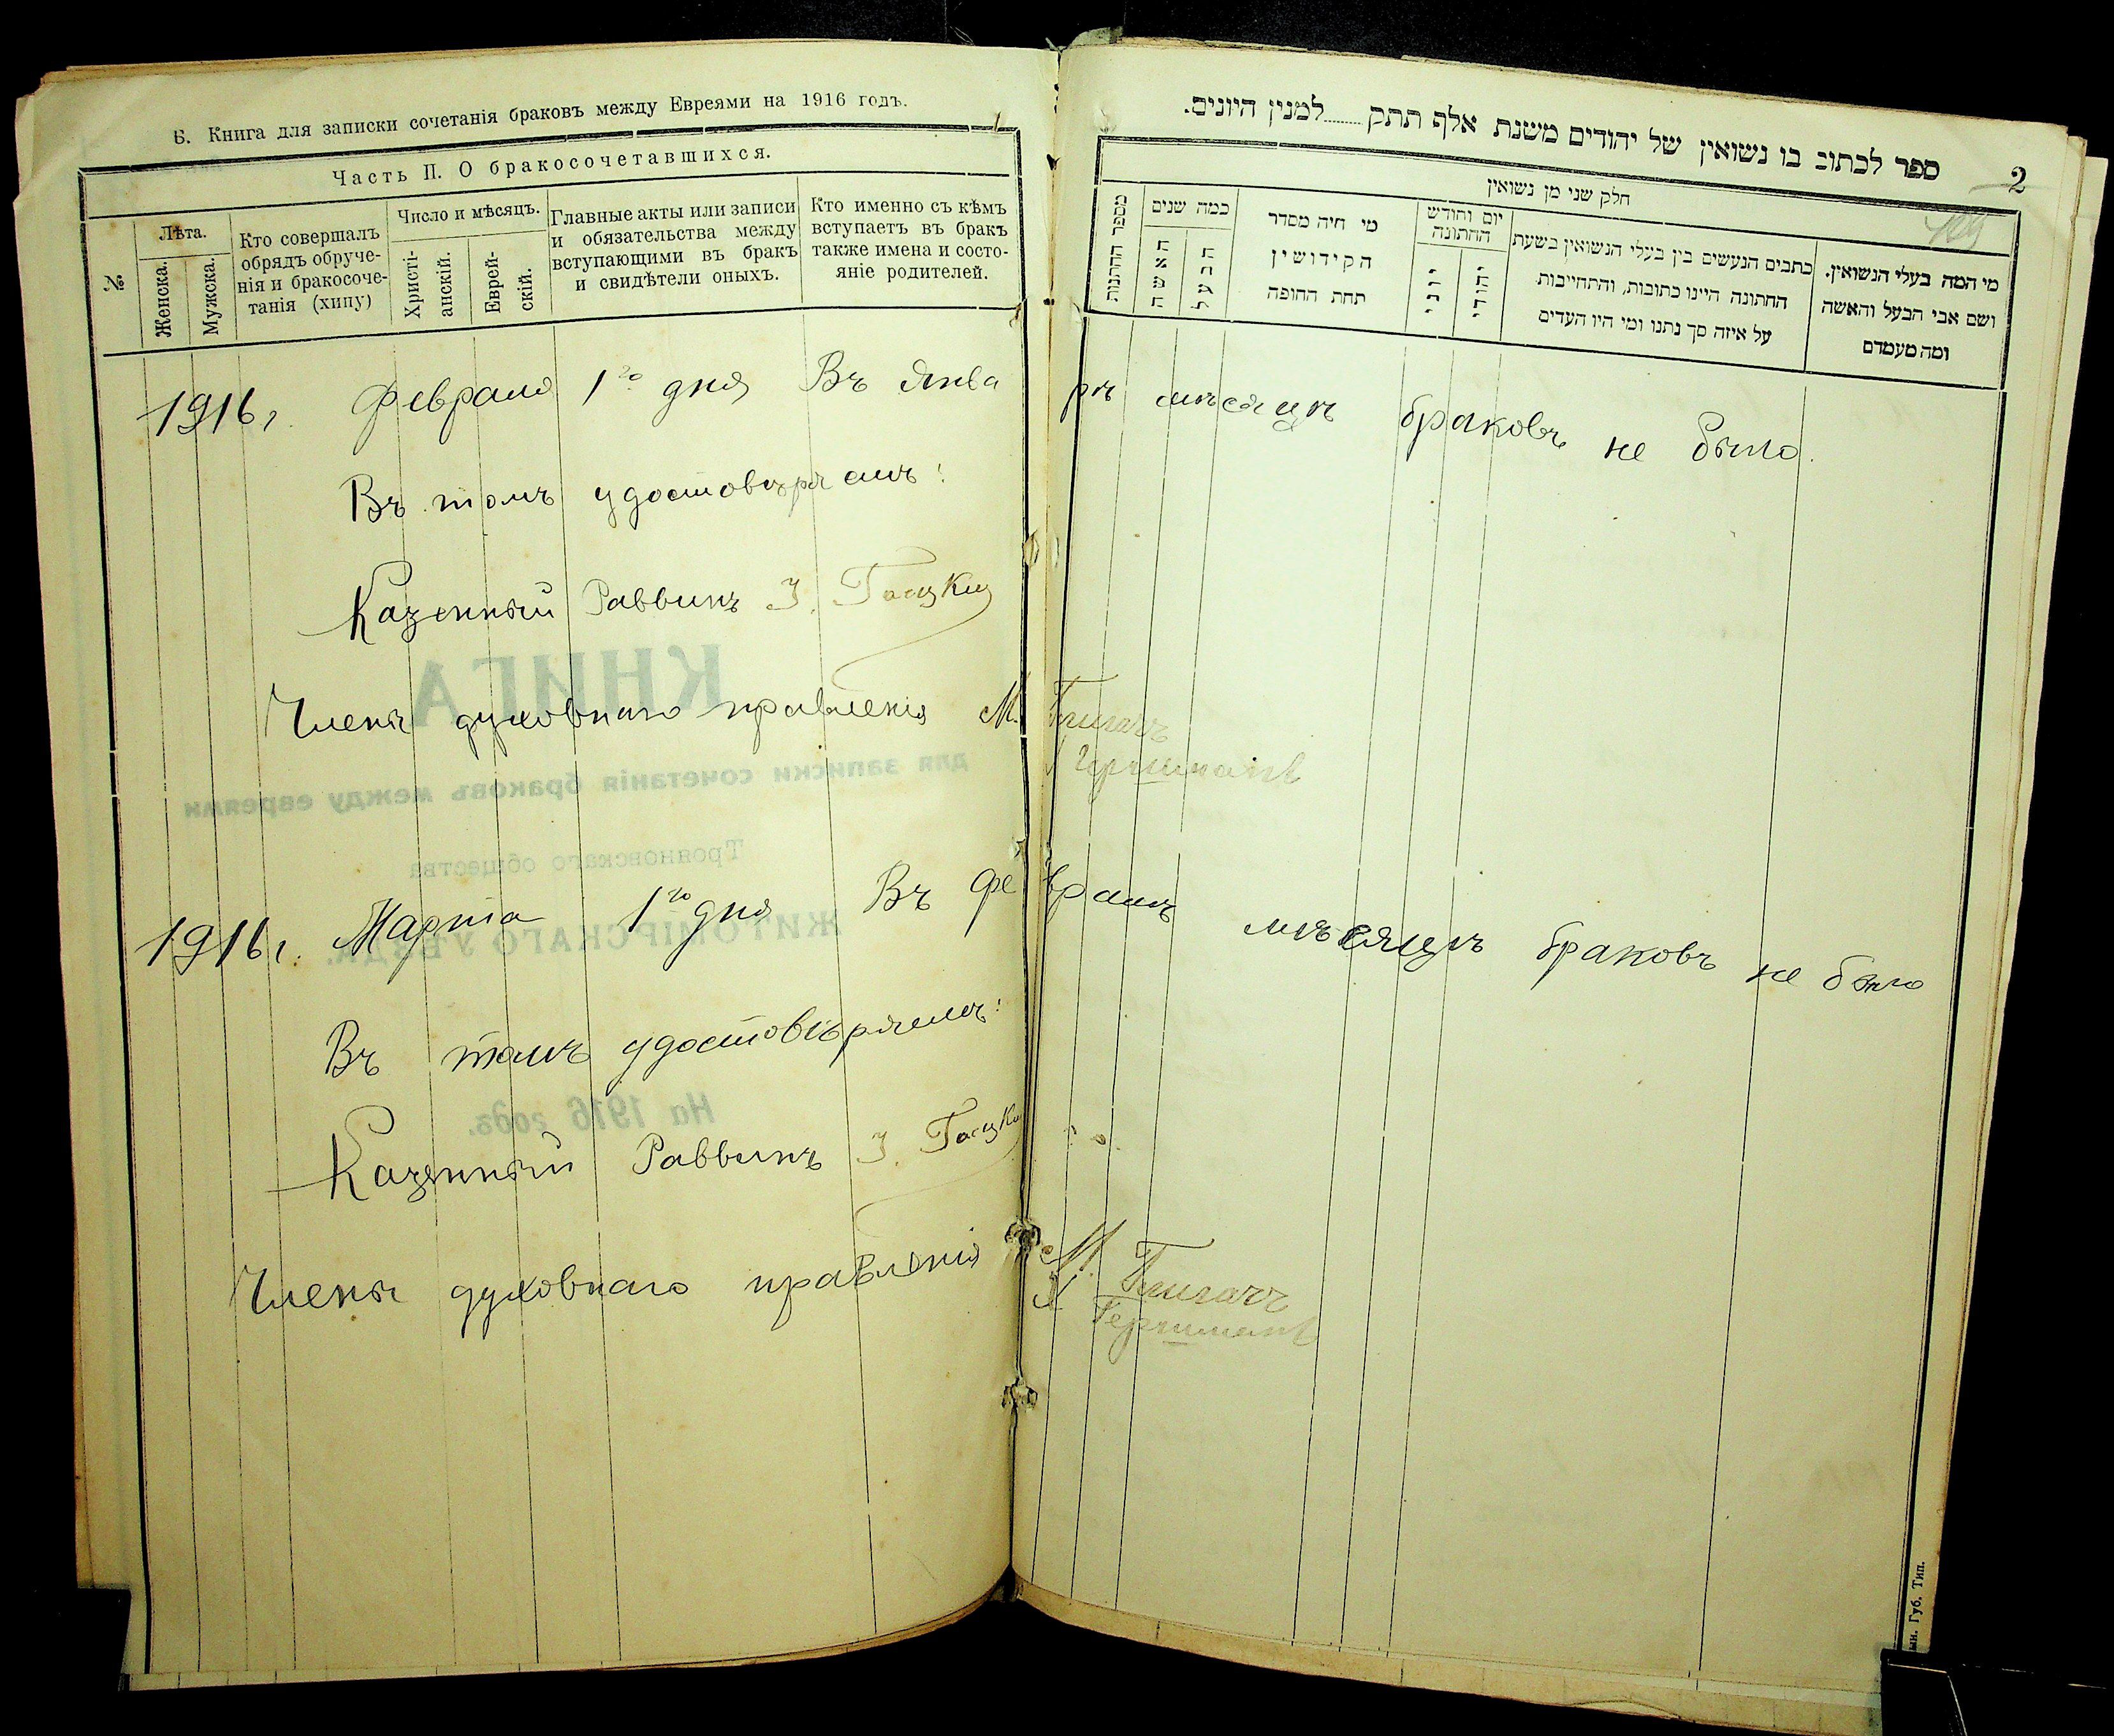 Б. Книга для записки сочетанія браковъ между Евреями на 1916 годъ.
Часть II. О бракосочетавшихся.
№
Лѣта.
Женска.
Мужска.
Кто совершалъ
обрядъ обруче-
нія и бракосоче-
танія (хипу)
Число и мѣсяцъ.
Христі-
анскій.
Еврей-
скій.
Главные акты или записи
и обязательства между
вступающими въ бракъ
и свидѣтели оныхъ.
Кто именно съ кѣмъ
вступаетъ въ бракъ
также имена и состо-
яніе родителей.
ספר לכתוב בו נשואין של יהודים משנת אלף תתק........למנין היונים.
2
חלק שני מן נשואין
מספר החתונות
כמה שנים
האשה
הבעל
מי היה מסדר
הקידושין
תחת החופה
יום וחודש
החתונה
יוני
יהודי
כתבים הנעשים בין בעלי הנשואין בשעת
החתונה היינו כתובות, והתחייבות
על איזה סך נתנו ומי היו העדים
מי המה בעלי הנשואין.
ושם אבי הבעל והאשה
ומה מעמדם
1916 г. Февраля 1го дня Въ январѣ мѣсяцѣ браковъ не было.
Въ томъ удостовѣряемъ:
Казенный Раввинъ
Члены духовнаго правленія М.
Гершманъ
1916 г. Марта 1го дня Въ февралѣ мѣсяцѣ браковъ не было
Въ томъ удостовѣряемъ:
Казенный Раввинъ
Члены духовнаго правленія М.
Гершманъ
КНИГА
для записки сочетанія браковъ между евреями
Трояновскаго общества
ЖИТОМІРСКАГО УѢЗДА.
На 1916 годъ.
Губ. Тип.